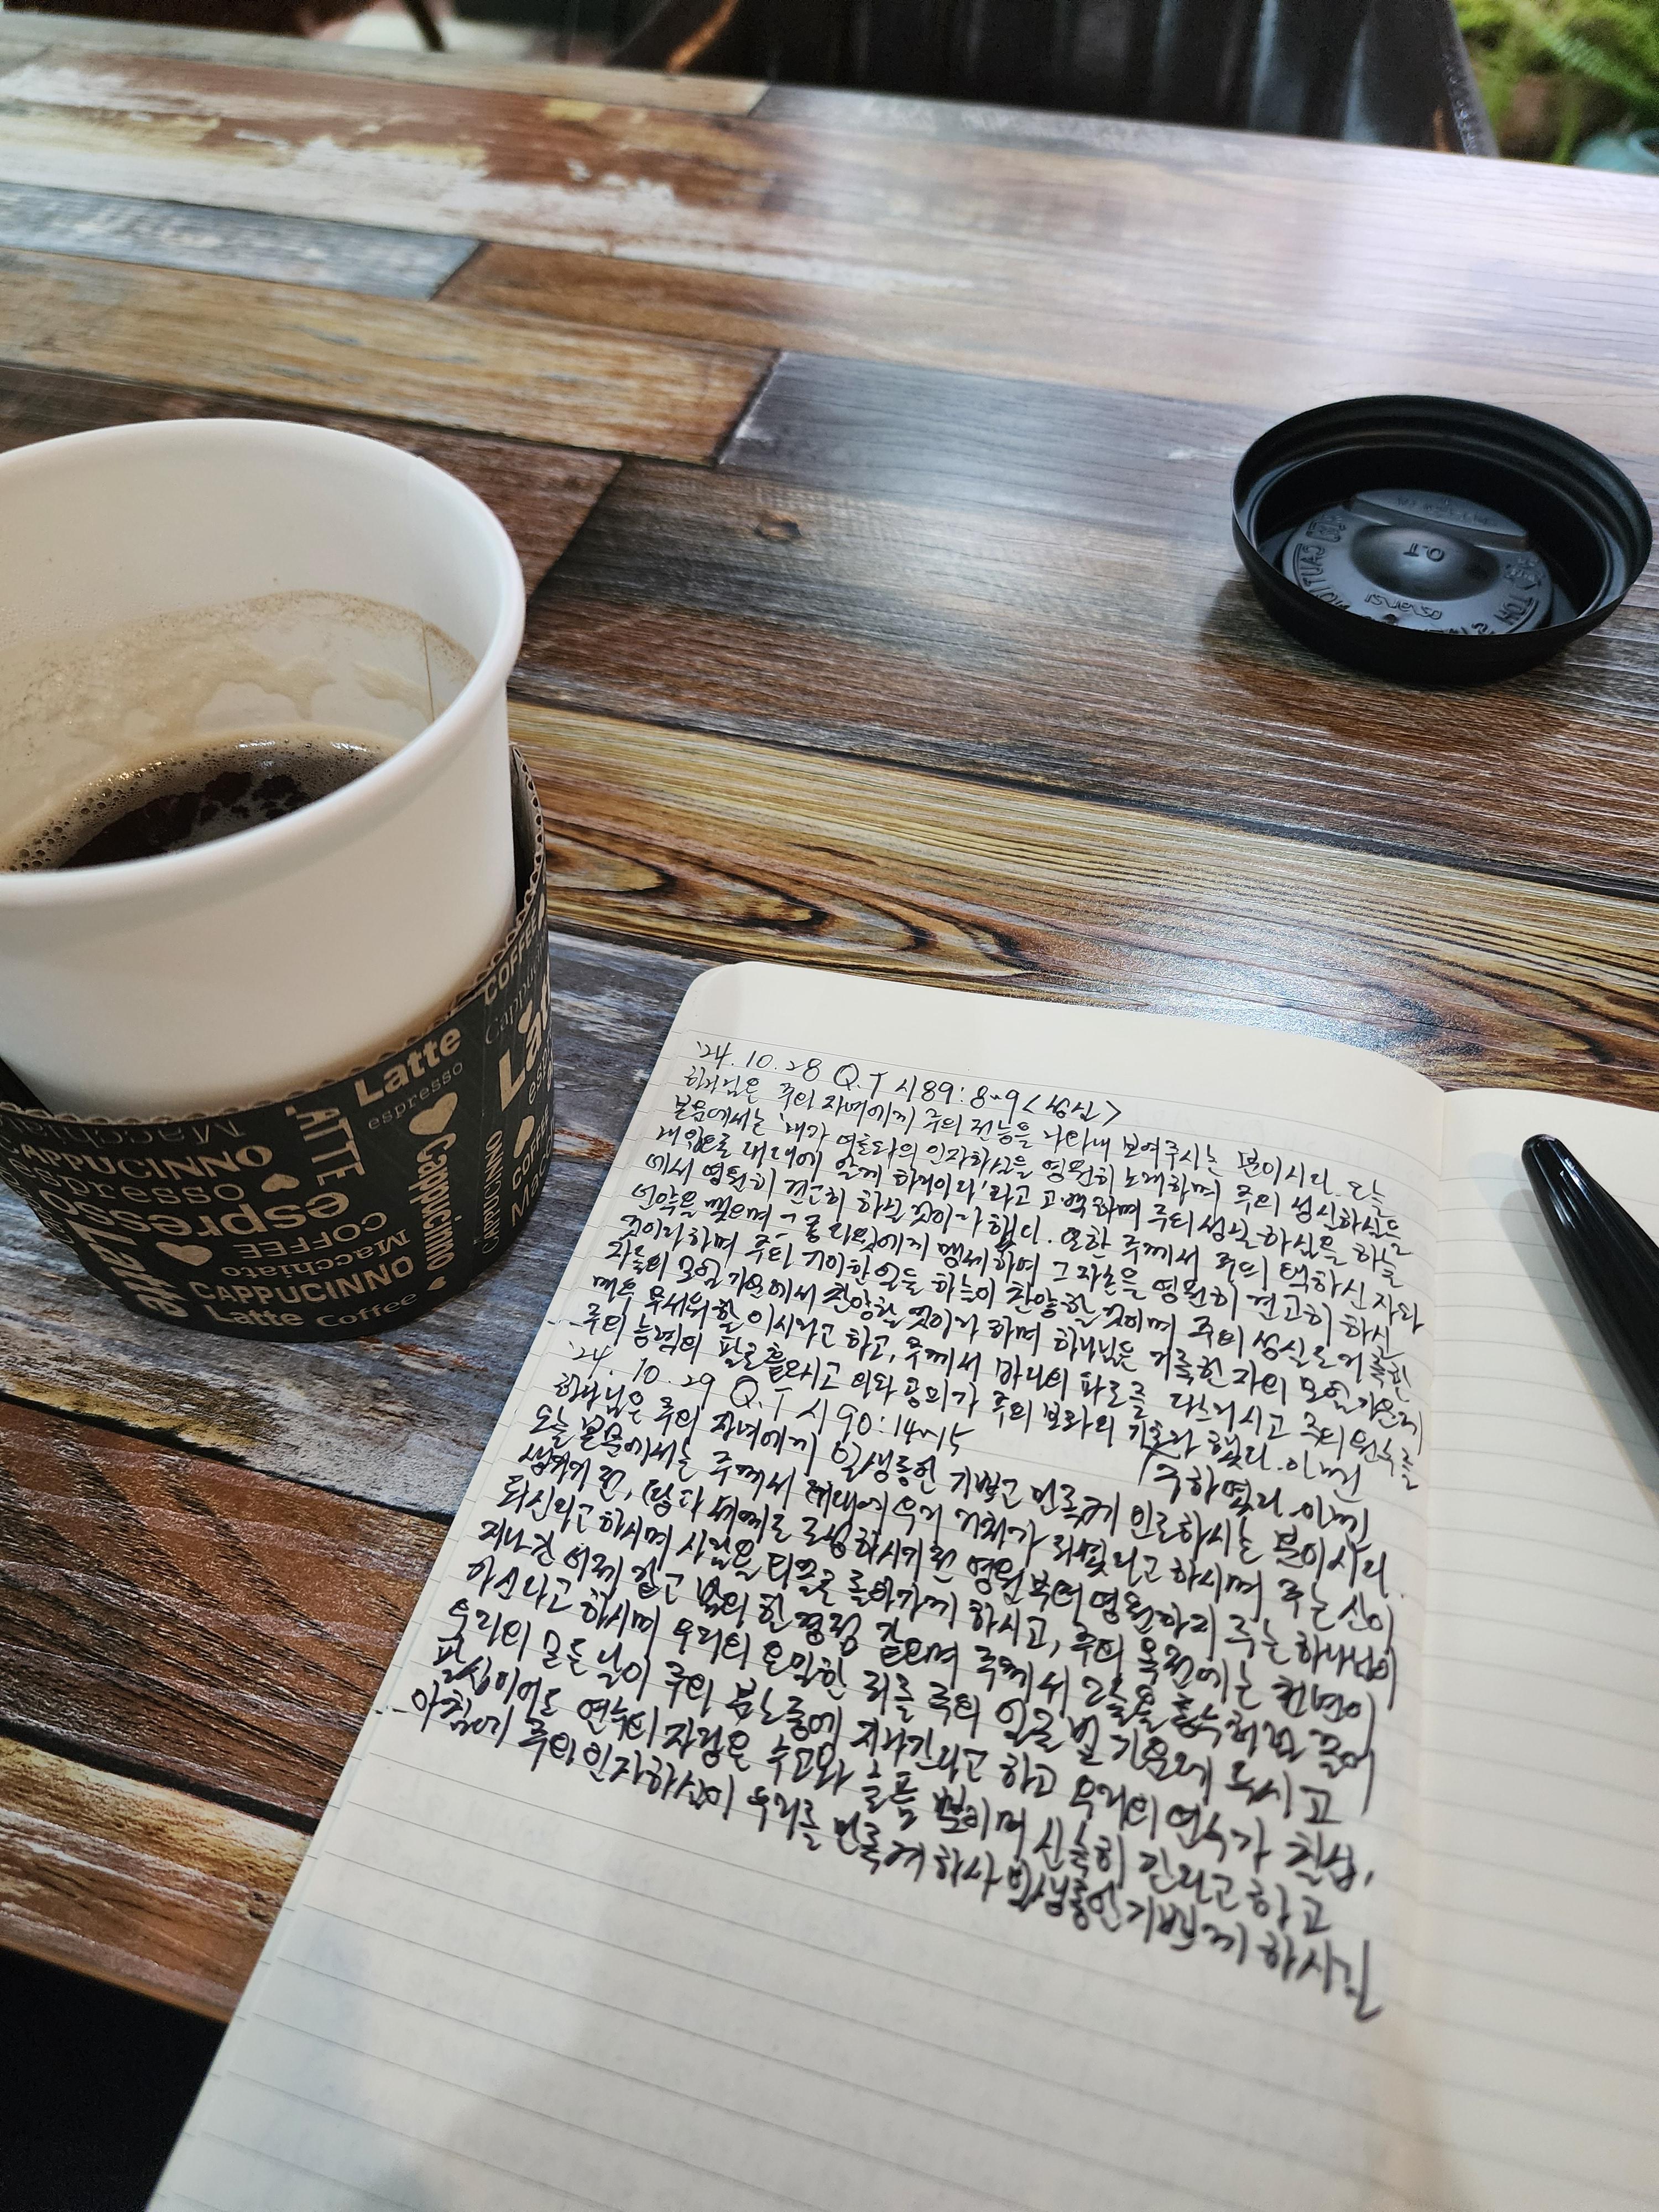 '24.10.28 Q.T 시89:8~9 <성실>
하나님은 주의 자녀에게 주의 전능을 나타내 보여주시는 분이시다. 오늘
본문에서는 '내가 여호와의 인자하심을 영원히 노래하며 주의 성실하심을
내 입으로 대대에 알게 하리이다'라고 고백하며 주의 성실하심을 하늘
에서 영원히 견고히 하실 것이라 했다. 또한 주께서 주의 택하신 자와
언약을 맺으며 그 종 다윗에게 맹세하며 그 자손을 영원히 견고히 하신
것이라 하며 주의 기이한 일을 하늘이 찬양할 것이며 주의 성실도 거룩한
자들의 모임 가운에서 찬양할 것이라 하며 하나님은 거룩한 자의 모임 가운데
매우 무서워할 이시라고 하고, 주께서 바다의 파도를 다스리시고 주의 원수를
주의 능력의 팔로 흩으시고 의와 공의가 주의 보좌의 기초라 했다. 이끼
'24. 10. 29 Q.T 시 90:14~15
주하였다.
하나님은 주의 자녀에게 일생동안 기쁘고 만족하게 인도하시는 분이시다.
오늘 본문에서는 주께서 대대에 우리 거처가 되셨다고 하시며 주는 산이
생기기 전, 땅과 세계도 조성하시기 전 영원부터 영원까지 주는 하나님이
되신다고 하시며 사람을 티끌로 돌아가게 하시고, 주의 목전에는 천년이
지나간 어제 같고 밤의 한 경점 같으며 주께서 그들을 홍수처럼 쓸어
가신다고 하시며 우리의 은밀한 죄를 주의 얼굴 빛 가운데 두시고
우리의 모든 날이 주의 분노 중에 지나간다고 하고 우리의 연수가 칠십,
팔십이어도 연수의 자랑은 수고와 슬픔 뿐이며 신속히 간다고 하고
아침에 주의 인자하심이 우리를 만족케 하사 일생동안 기쁘게 하시길
Latte
espresso
Cappucinno
COFFEE
Macchiato
CAPPUCINNO
Latte Coffee
LATTE
espresso
CAPPUCINNO